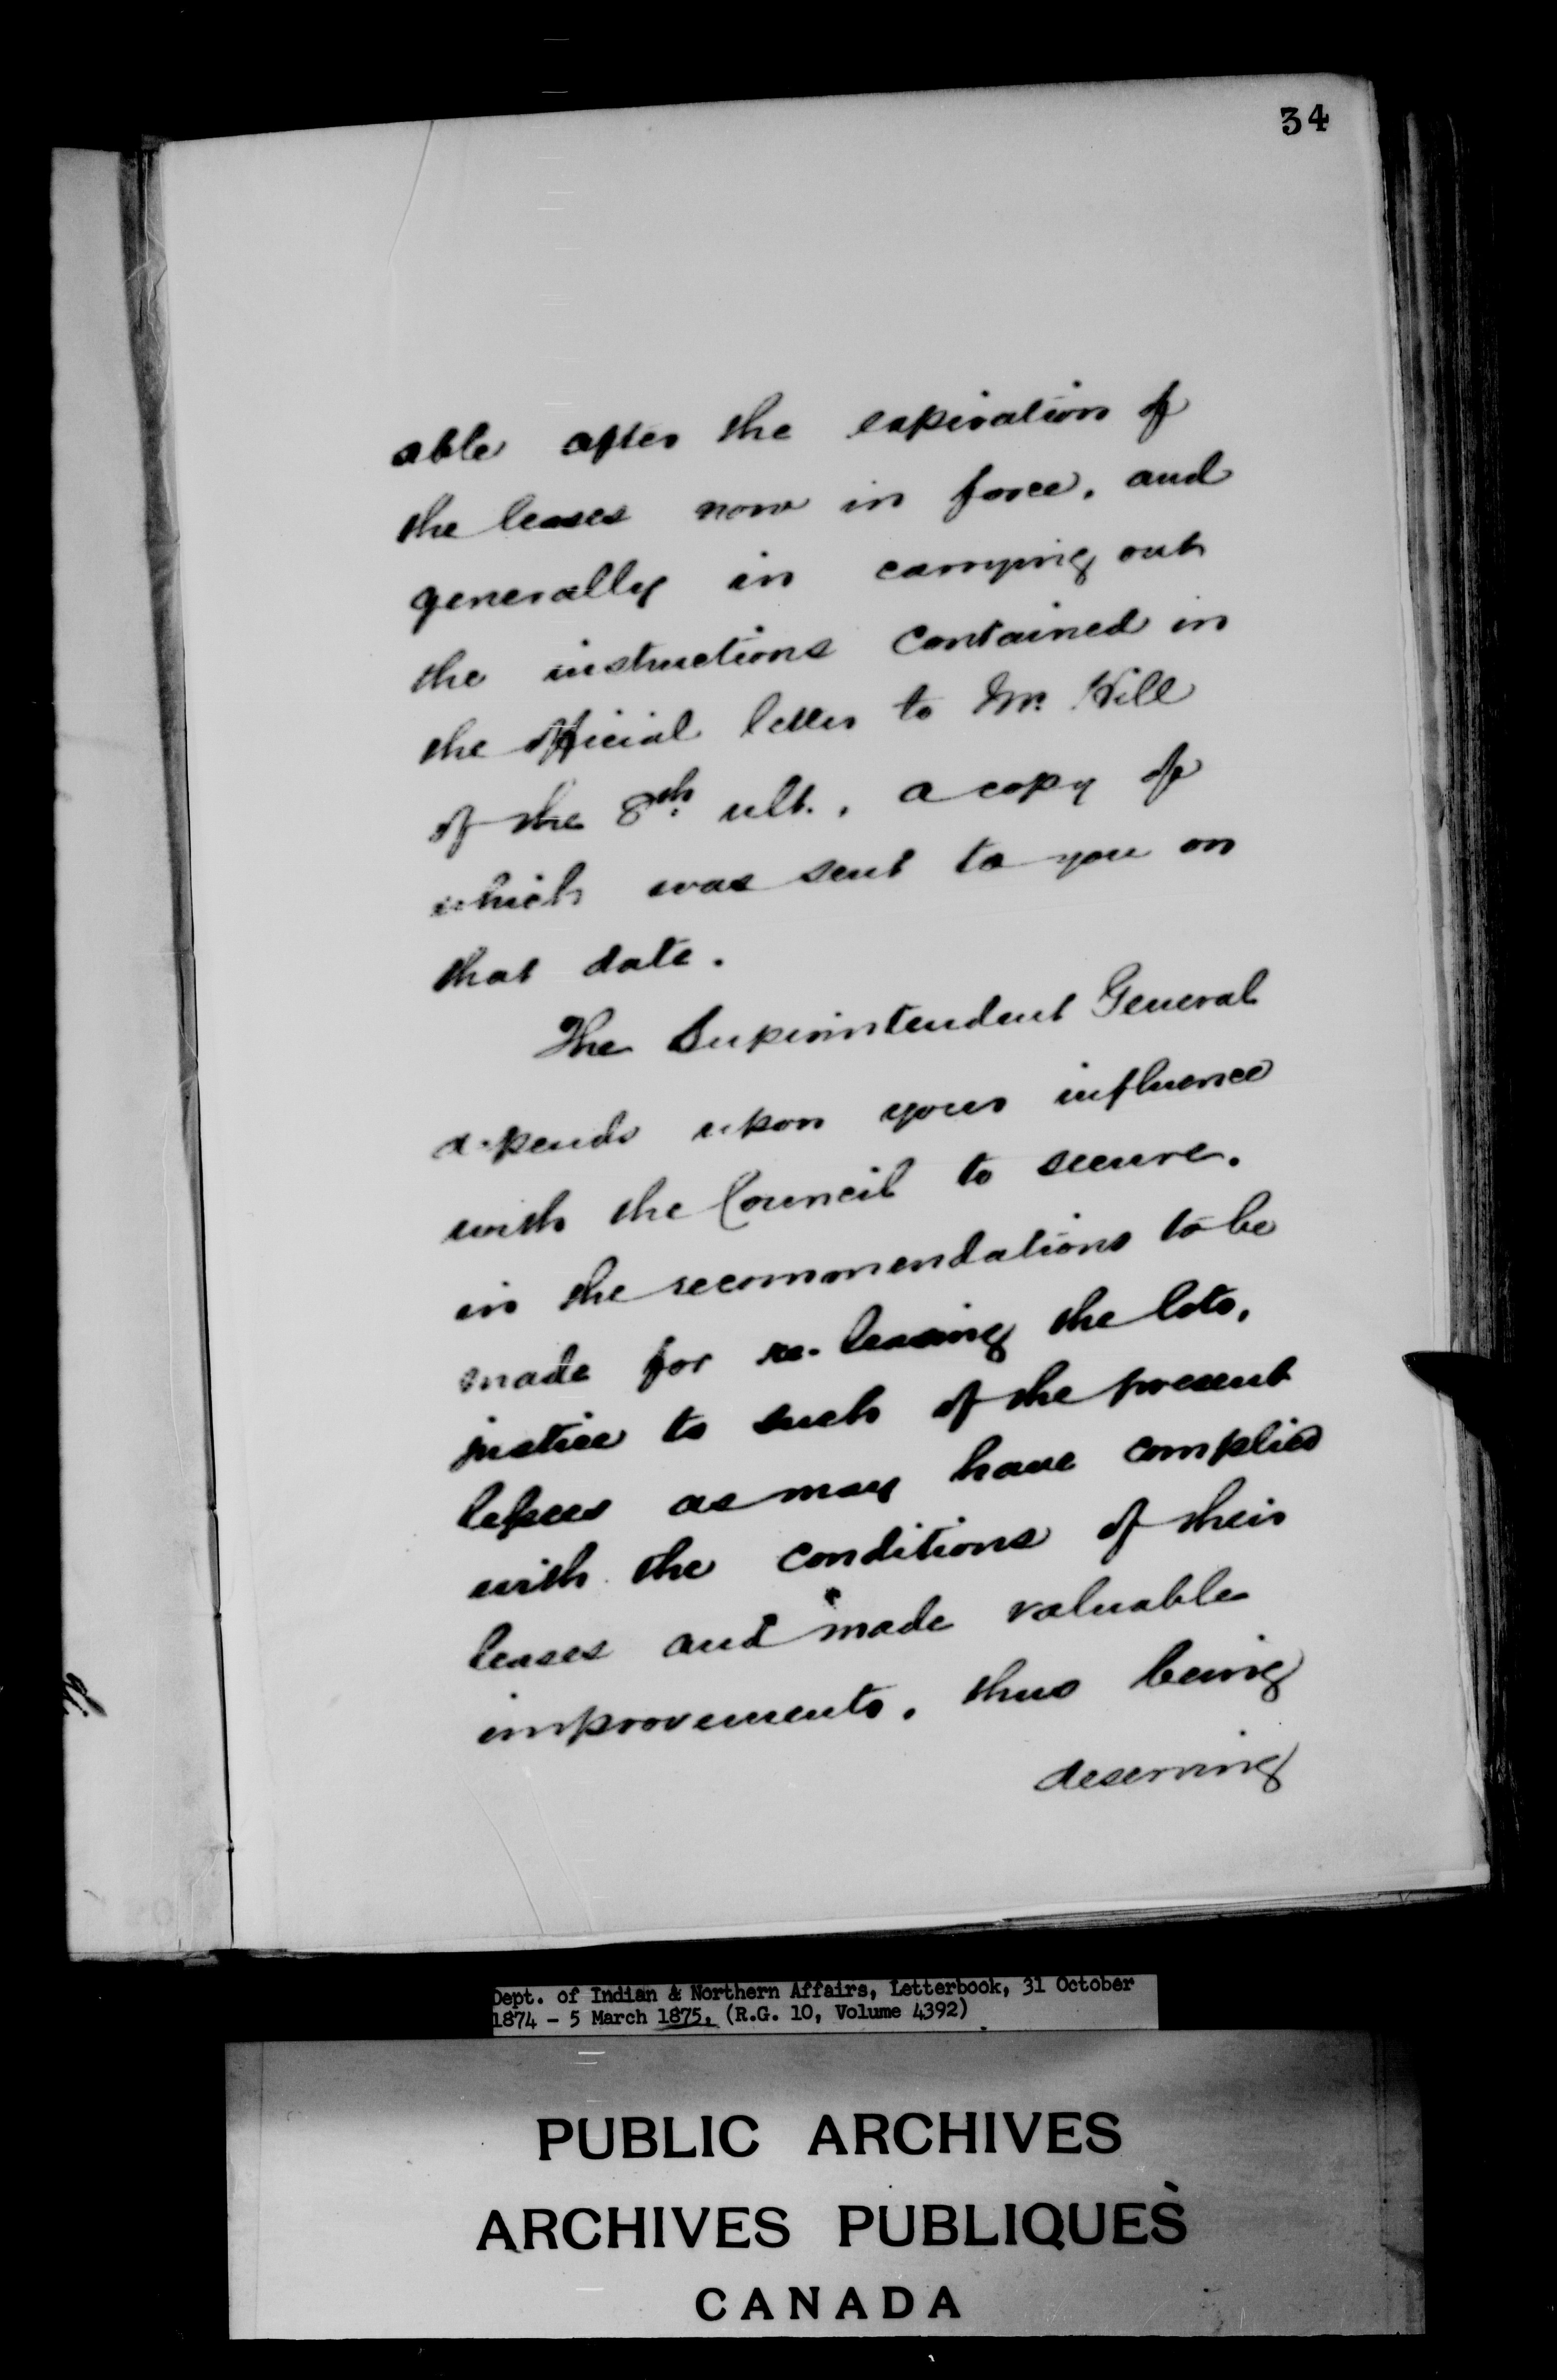 34
able after the expiration of
the leases now in force, and
generally in carrying out
the instructions contained in
the official letter to Mr. Hill
of the 8th ult., a copy of
which was sent to you on
that date.
The Superintendent General
depends upon your influence
with the Council to secure,
in the recommendations to be
made for re-leasing the lots,
justice to such of the present
lessees as may have complied
with the conditions of their
leases and made valuable
improvements, thus being
deserving
Dept. of Indian & Northern Affairs, Letterbook, 31 October
1874 - 5 March 1875, (R.G. 10, Volume 4392)
PUBLIC ARCHIVES
ARCHIVES PUBLIQUES
CANADA